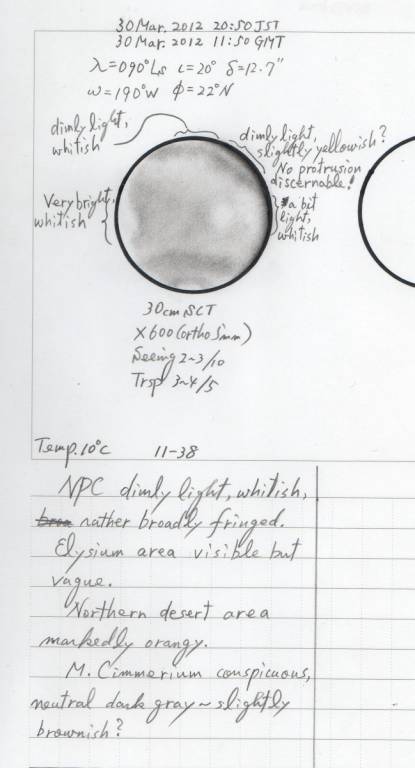 30 Mar. 2012 20:50 JST
30 Mar. 2012 11:50 GMT
λ=090°Ls ι=20° δ=12.7"
ω=190°W φ=22°N
dimly light,
whitish
dimly light,
slightly yellowish?
No protrusion
discernable.
Very bright,
whitish
a bit
light,
whitish
30cm SCT
×600 (ortho 5mm)
Seeing 2~3/10
Trsp 3~4/5
Temp. 10°C 11-38
NPC dimly light, whitish,
rather broadly fringed.
Elysium area visible but
vague.
Northern desert area
markedly orangy.
M. Cimmerium conspicuous,
neutral dark gray ~ slightly
brownish?